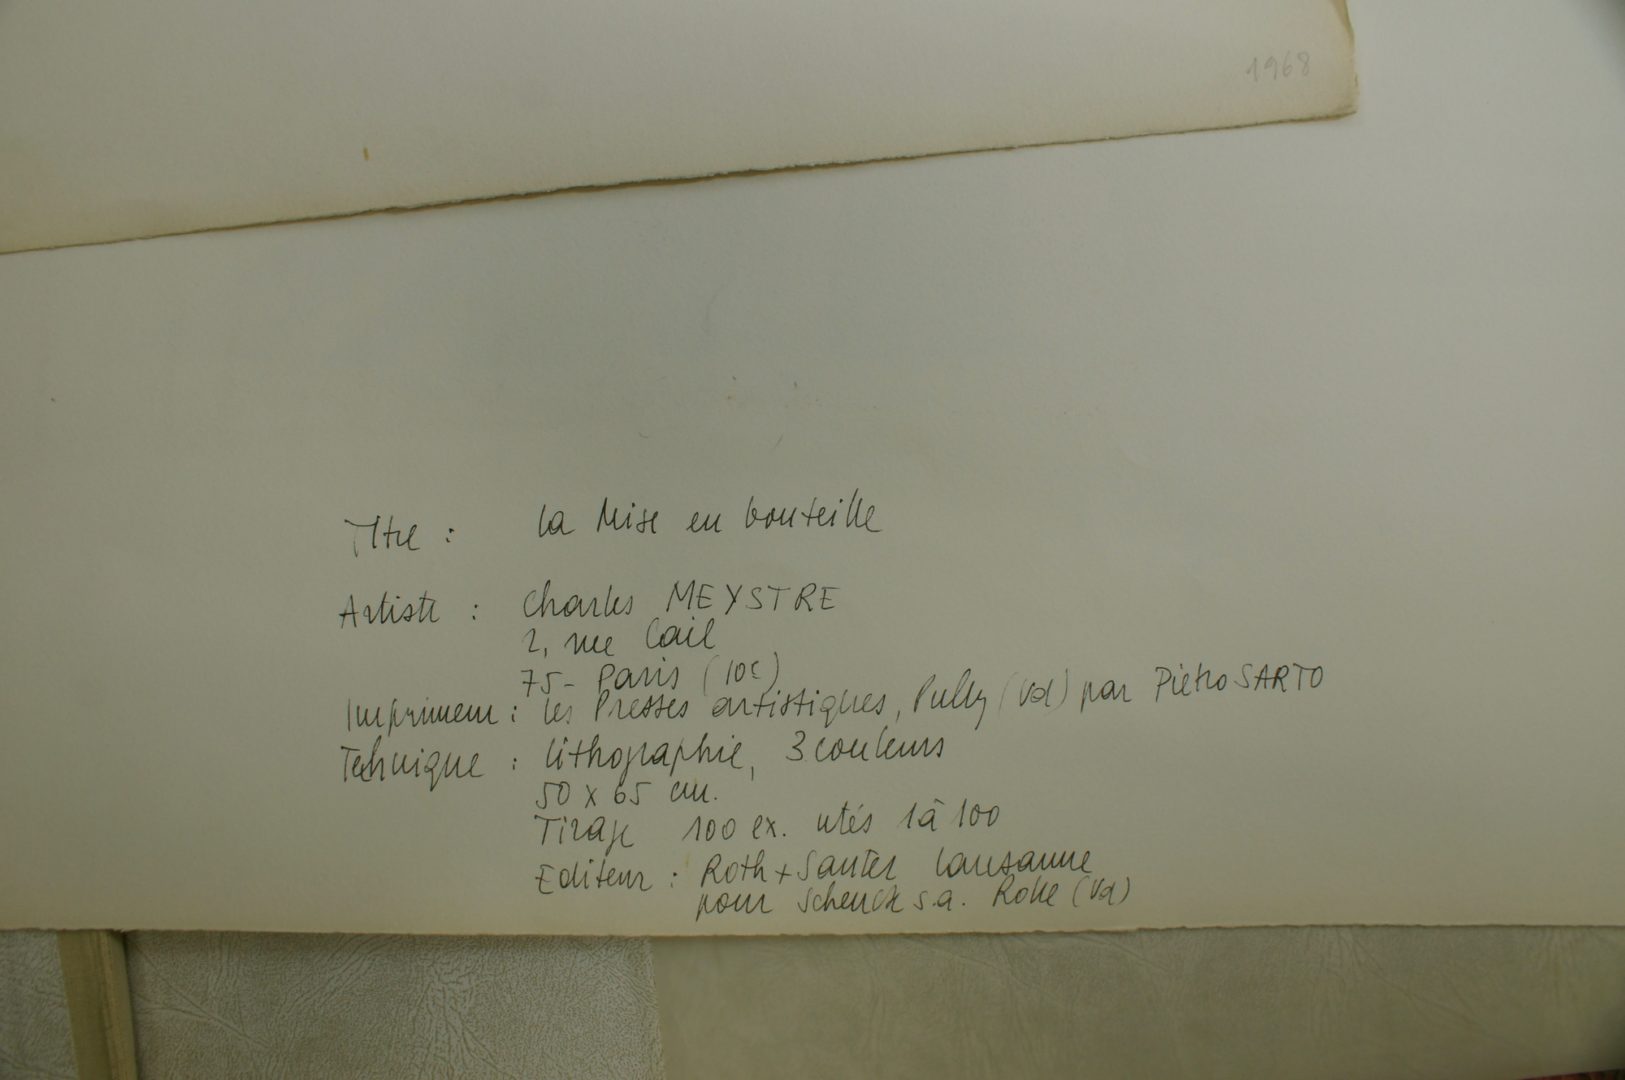 1968
Titre : la Mise en bouteille
Artiste : Charles MEYSTRE
2, rue Cail
75- Paris (10e)
Imprimeur : les Presses artistiques, Pully (Vd) par Pietro SARTO
Technique : lithographie, 3 couleurs
50 x 65 cm.
Tirage 100 ex. ntés 1 à 100
Editeur : Roth + Sauter Lausanne
pour Schenck s.a. Rolle (Vd)